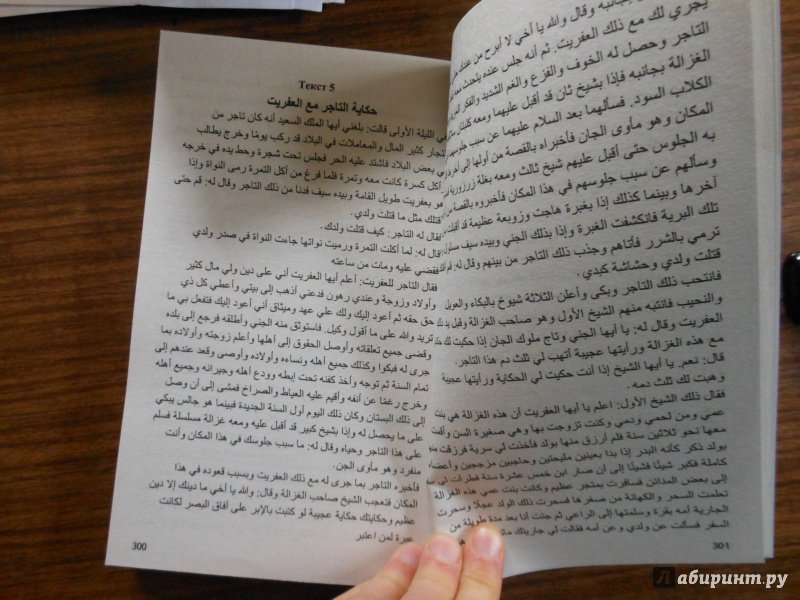 Текст 5
حكاية التاجر مع العفريت
في الليلة الأولى قالت: بلغني أيها الملك السعيد أنه كان تاجر من
التجار كثير المال والمعاملات في البلاد قد ركب يومًا وخرج يطالب
في بعض البلاد فاشتد عليه الحر فجلس تحت شجرة وحط يده في خرجه
وأكل كسرة كانت معه وتمرة فلما فرغ من أكل التمرة رمى النواة وإذا
هو بعفريت طويل القامة وبيده سيف فدنا من ذلك التاجر وقال له: قم حتى
أقتلك مثل ما قتلت ولدي.
فقال له التاجر: كيف قتلت ولدك.
قال له: لما أكلت التمرة ورميت نواتها جاءت النواة في صدر ولدي
فقضي عليه ومات من ساعته
فقال التاجر للعفريت: أعلم أيها العفريت أني على دين ولي مال كثير
وأولاد وزوجة وعندي رهون فدعني أذهب إلى بيتي وأعطي كل ذي
حق حقه ثم أعود إليك ولك علي عهد وميثاق أني أعود إليك فتفعل بي ما
تريد والله على ما أقول وكيل. فاستوثق منه الجني وأطلقه فرجع إلى بلده
وقضى جميع تعلقاته وأوصل الحقوق إلى أهلها وأعلم زوجته وأولاده بما
جرى له فبكوا وكذلك جميع أهله ونساءه وأولاده وأوصى وقعد عندهم إلى
تمام السنة ثم توجه وأخذ كفنه تحت إبطه وودع أهله وجيرانه وجميع أهله
وخرج رغمًا عن أنفه وأقيم عليه العياط والصراخ فمشى إلى أن وصل
إلى ذلك البستان وكان ذلك اليوم أول السنة الجديدة فبينما هو جالس يبكي
على ما يحصل له وإذا بشيخ كبير قد أقبل عليه ومعه غزالة مسلسلة فسلم
على هذا التاجر وحياه وقال له: ما سبب جلوسك في هذا المكان وأنت
منفرد وهو مأوى الجن.
فأخبره التاجر بما جرى له مع ذلك العفريت وبسبب قعوده في هذا
المكان فتعجب الشيخ صاحب الغزالة وقال: والله يا أخي ما دينك إلا دين
عظيم وحكايتك حكاية عجيبة لو كتبت بالإبر على آفاق البصر لكانت
عبرة لمن اعتبر
300
بجانبه وقال والله يا أخي لا أبرح من عندك حتى
يجري لك مع ذلك العفريت. ثم أنه جلس عنده يتحدث معه
التاجر وحصل له الخوف والفزع والغم الشديد والفكر
الغزالة بجانبه فإذا بشيخ ثان قد أقبل عليهما ومعه كلبتان
الكلاب السود. فسألهما بعد السلام عليهما عن سبب جلوسهما
المكان وهو مأوى الجان فأخبراه بالقصة من أولها إلى آخرها
به الجلوس حتى أقبل عليهم شيخ ثالث ومعه بغلة زرزورية
وسألهم عن سبب جلوسهم في هذا المكان فأخبروه بالقصة من
آخرها وبينما كذلك إذا بغبرة هاجت وزوبعة عظيمة قد أقبلت
تلك البرية فانكشفت الغبرة وإذا بذلك الجني وبيده سيف مسلول
ترمي بالشرر فأتاهم وجذب ذلك التاجر من بينهم وقال له: قم
قتلت ولدي وحشاشة كبدي.
فانتحب ذلك التاجر وبكى وأعلن الثلاثة شيوخ بالبكاء والعويل
والنحيب فانتبه منهم الشيخ الأول وهو صاحب الغزالة وقبل يد
العفريت وقال له: يا أيها الجني وتاج ملوك الجان إذا حكيت لك
مع هذه الغزالة ورأيتها عجيبة أتهب لي ثلث دم هذا التاجر.
قال: نعم. يا أيها الشيخ إذا أنت حكيت لي الحكاية ورأيتها عجيبة
وهبت لك ثلث دمه.
فقال ذلك الشيخ الأول: اعلم يا أيها العفريت أن هذه الغزالة هي بنت
عمي ومن لحمي ودمي وكنت تزوجت بها وهي صغيرة السن وأقمت
معها نحو ثلاثين سنة فلم أرزق منها بولد فأخذت لي سرية فرزقت منها
بولد ذكر كأنه البدر إذا بدا بعينين مليحتين وحاجبين مزججين وأعضاء
كاملة فكبر شيئًا فشيئًا إلى أن صار ابن خمس عشرة سنة فطرأت لي
إلى بعض المدائن فسافرت بمتجر عظيم وكانت بنت عمي هذه الغزالة
تعلمت السحر والكهانة من صغرها فسحرت ذلك الولد عجلاً وسحرت
الجارية أمه بقرة وسلمتها إلى الراعي ثم جئت أنا بعد مدة طويلة من
السفر فسألت عن ولدي وعن أمه فقالت لي جاريتك
301
Лабиринт.ру